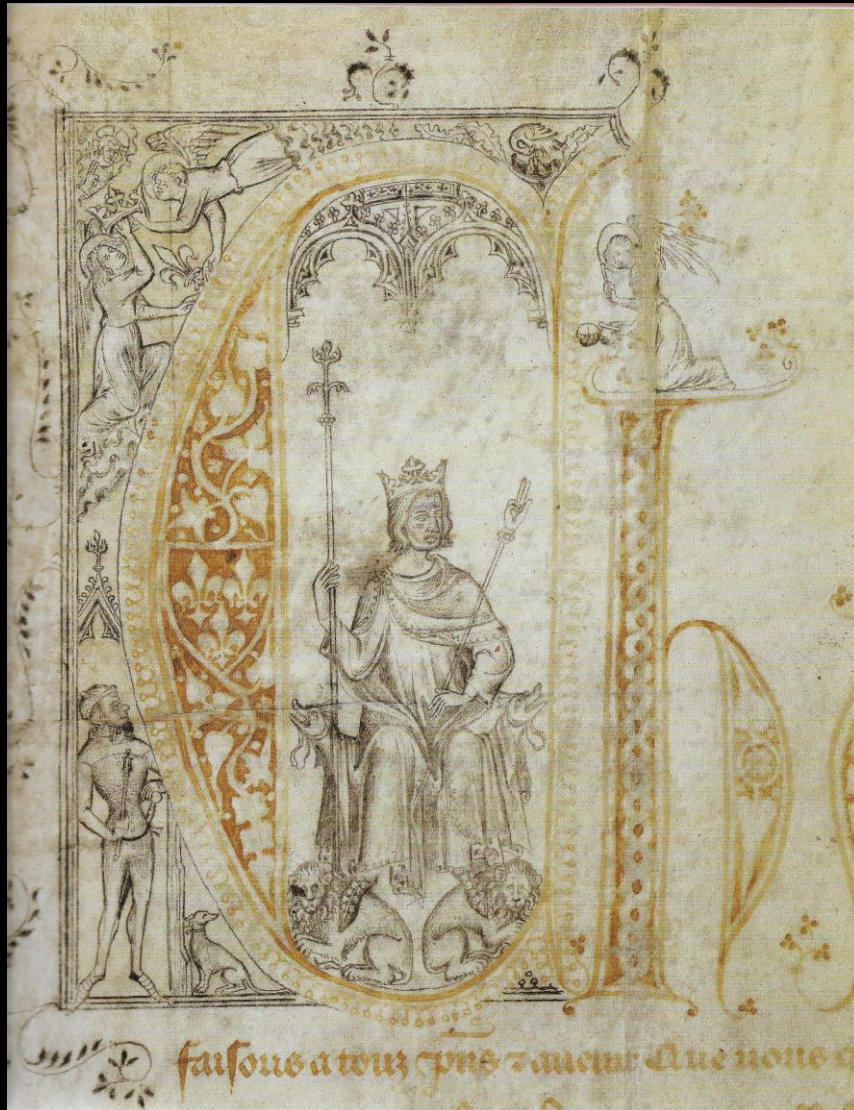 Ch
faisons a touz pns ⁊ auenir Que nous